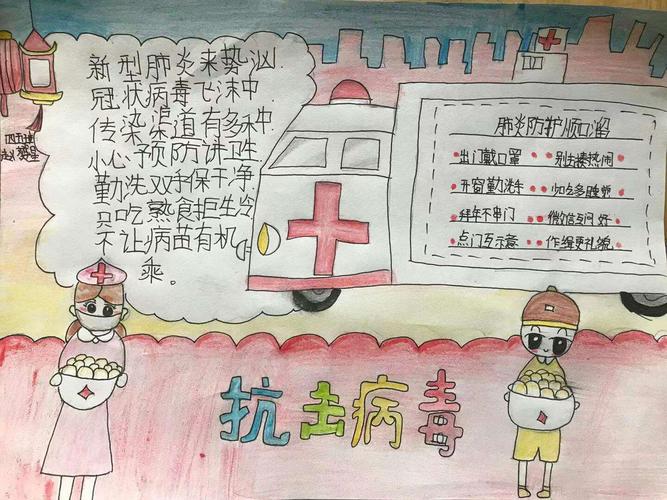 新型肺炎来势汹
冠状病毒飞沫中
传染渠道有多种
小心预防讲卫生
勤洗双手保干净
只吃熟食拒生冷
不让病苗有机
乘。
肺炎防护顺口溜
出门戴口罩 别去凑热闹
开窗勤洗手
拜年不串门 微信互问好
点门互示意 作缉更礼貌
抗击病毒